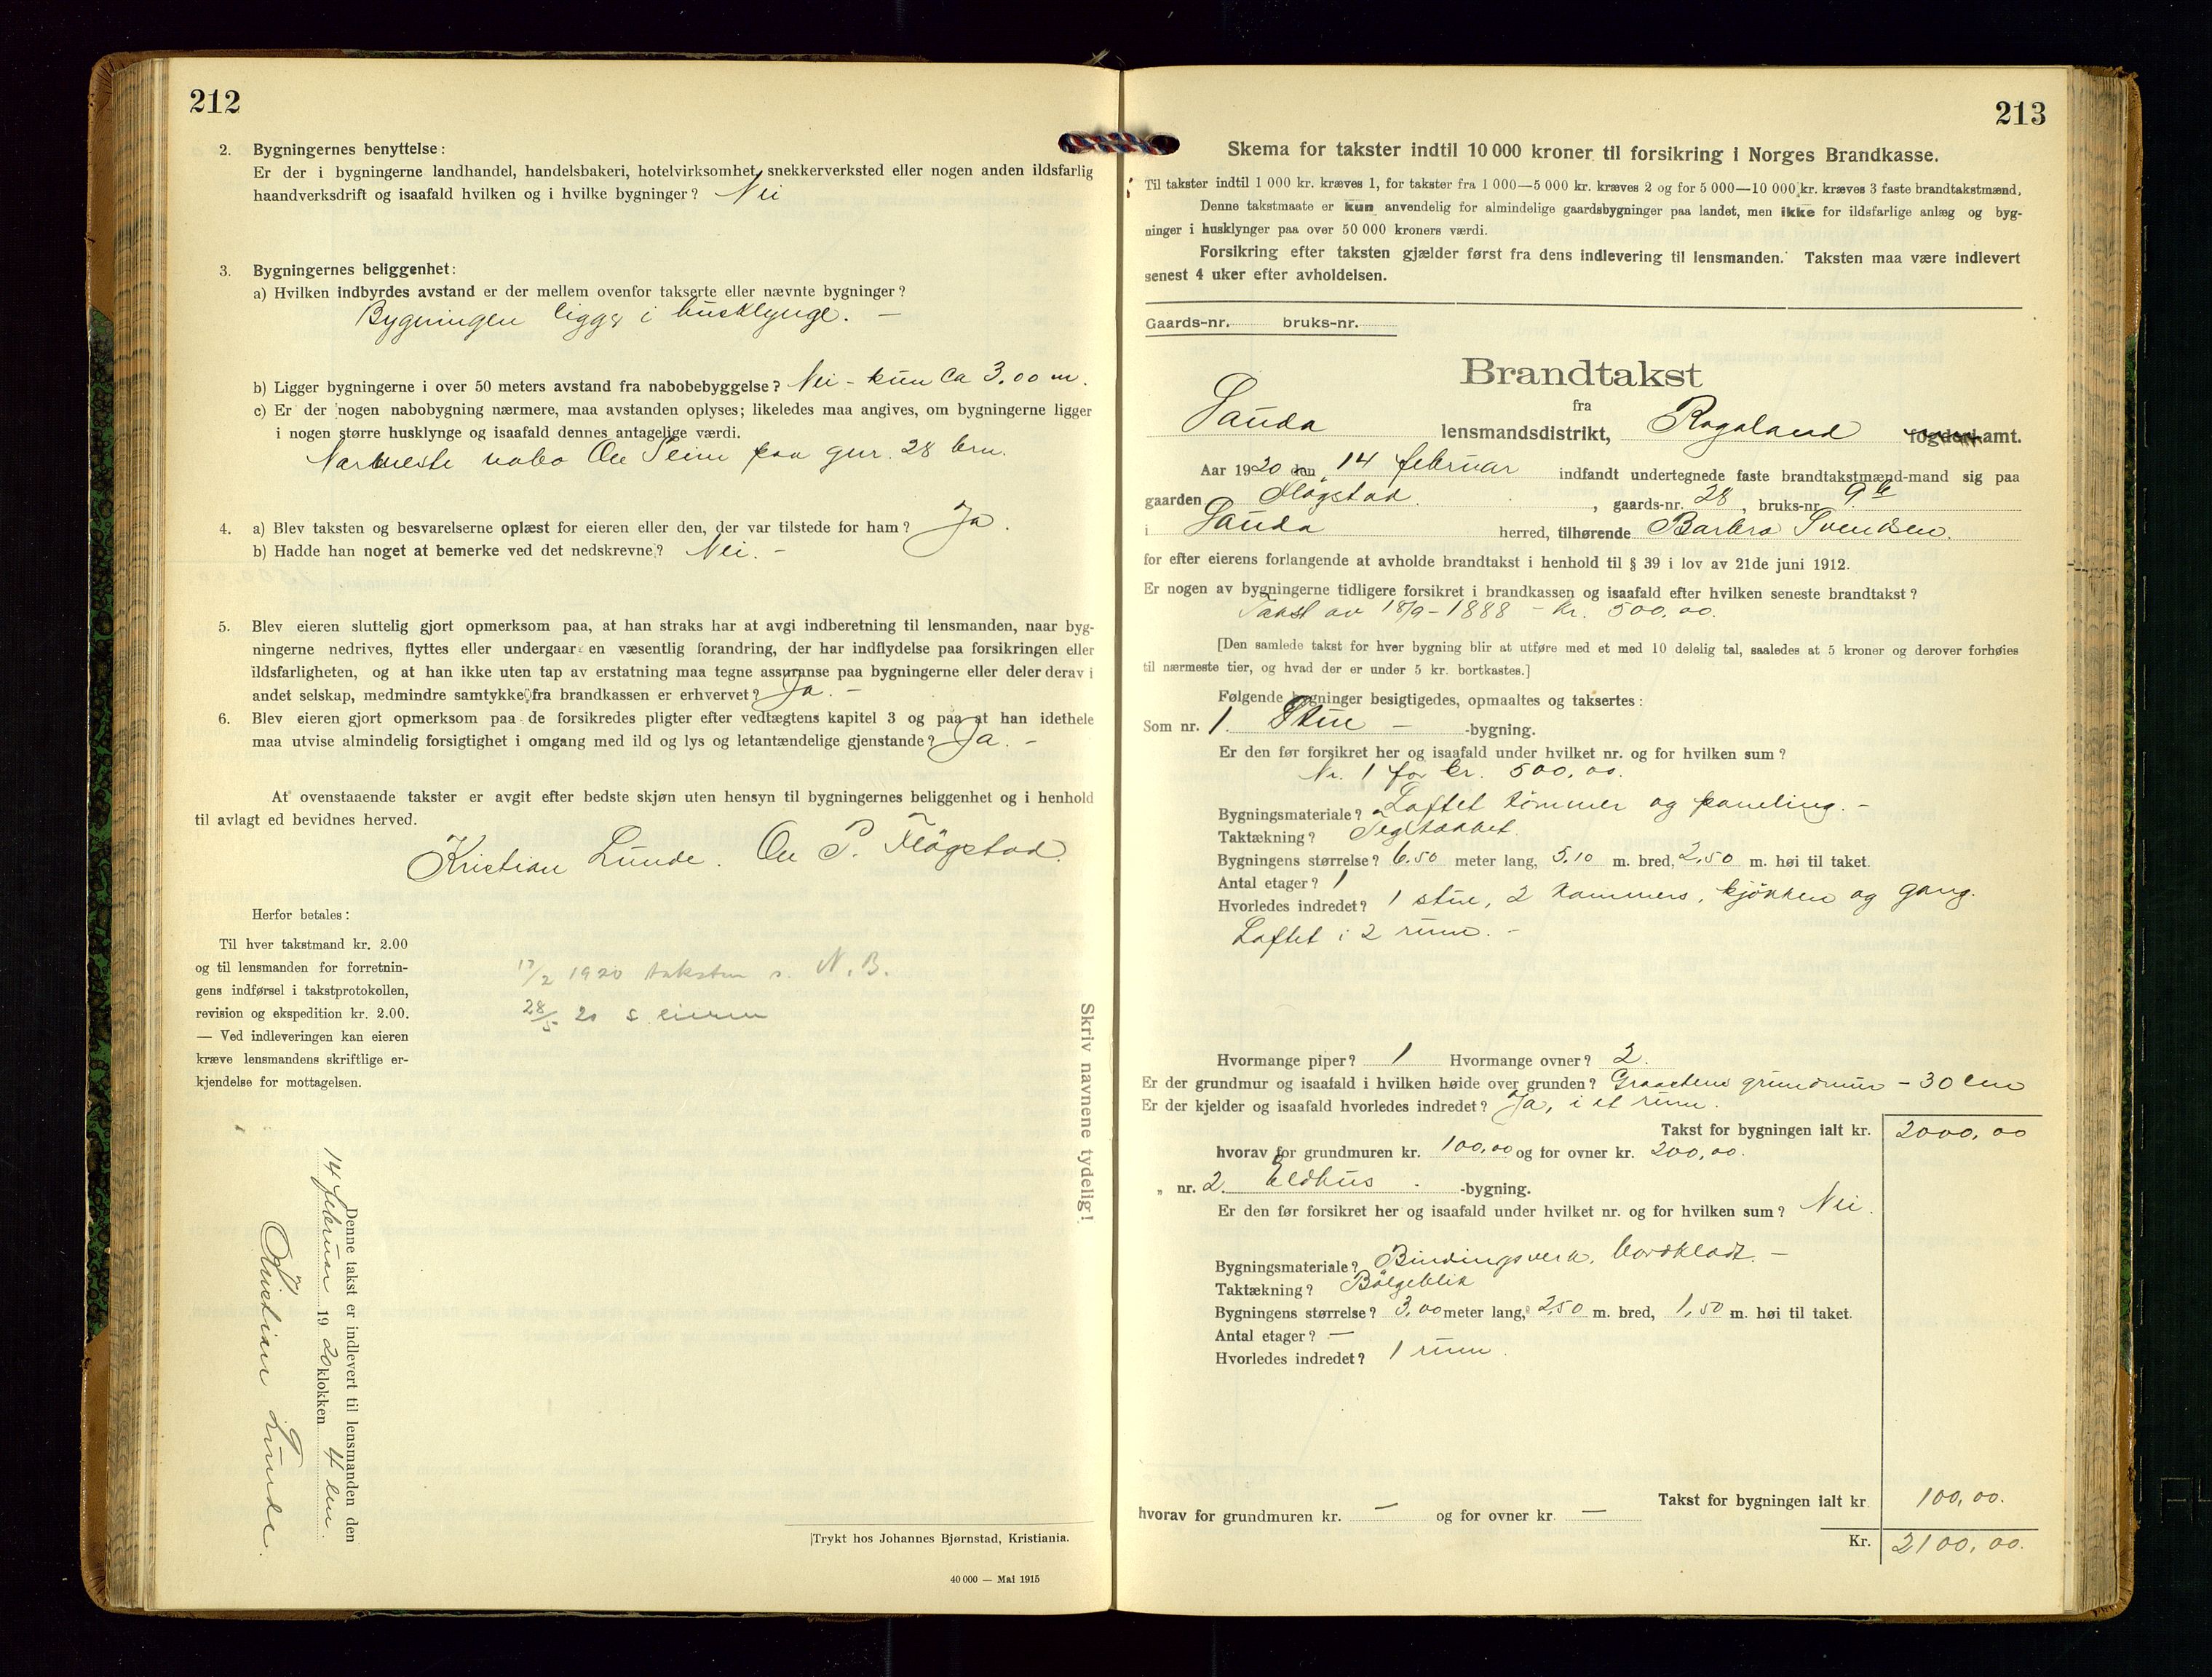 212
2. Bygningernes benyttelse:
Er der i bygningerne landhandel, handelsbakeri, hotelvirksomhet, snekkerverksted eller nogen anden ildsfarlig
haandverksdrift og isaafald hvilken og i hvilke bygninger? Nei
3. Bygningernes beliggenhet:
a) Hvilken indbyrdes avstand er der mellem ovenfor takserte eller nævnte bygninger?
Bygningen ligger i husklynge. —
b) Ligger bygningerne i over 50 meters avstand fra nabobebyggelse? Nei - kun ca 3,00 m.
c) Er der nogen nabobygning nærmere, maa avstanden oplyses; likeledes maa angives, om bygningerne ligger
i nogen større husklynge og isaafald dennes antagelige værdi.
Nærmeste nabo Ole Seim paa gnr. 28 brn.
4. a) Blev taksten og besvarelserne oplæst for eieren eller den, der var tilstede for ham? Ja.
b) Hadde han noget at bemerke ved det nedskrevne? Nei. -
5. Blev eieren sluttelig gjort opmerksom paa, at han straks har at avgi indberetning til lensmanden, naar byg-
ningerne nedrives, flyttes eller undergaar en væsentlig forandring, der har indflydelse paa forsikringen eller
ildsfarligheten, og at han ikke uten tap av erstatning maa tegne assuranse paa bygningerne eller deler derav i
andet selskap, medmindre samtykke fra brandkassen er erhvervet? Ja. -
6. Blev eieren gjort opmerksom paa de forsikredes pligter efter vedtægtens kapitel 3 og paa at han idethele
maa utvise almindelig forsigtighet i omgang med ild og lys og letantændelige gjenstande? Ja. -
At ovenstaaende takster er avgit efter bedste skjøn uten hensyn til bygningernes beliggenhet og i henhold
til avlagt ed bevidnes herved.
Kristian Lunde. Ole P. Fløgstad.
Herfor betales:
Til hver takstmand kr. 2.00
og til lensmanden for forretnin-
gens indførsel i takstprotokollen,
revision og ekspedition kr. 2.00.
— Ved indleveringen kan eieren
kræve lensmandens skriftlige er-
kjendelse for mottagelsen.
17/2 1920 taksten s. N. B.
28/5 20 s. eieren
Skriv navnene tydelig!
Denne takst er indlevert til lensmanden den
14 februar 1920 klokken 4 em.
Kristian Lunde.
Trykt hos Johannes Bjørnstad, Kristiania.
40 000 — Mai 1915
213
Skema for takster indtil 10 000 kroner til forsikring i Norges Brandkasse.
Til takster indtil 1 000 kr. kræves 1, for takster fra 1 000—5 000 kr. kræves 2 og for 5 000—10 000 kr. kræves 3 faste brandtakstmænd.
Denne takstmaate er kun anvendelig for almindelige gaardsbygninger paa landet, men ikke for ildsfarlige anlæg og byg-
ninger i husklynger paa over 50 000 kroners værdi.
Forsikring efter taksten gjælder først fra dens indlevering til lensmanden. Taksten maa være indlevert
senest 4 uker efter avholdelsen.
Gaards-nr. bruks-nr.
Brandtakst
fra
Sauda lensmandsdistrikt, Rogaland fogderi amt.
Aar 1920 den 14 februar indfandt undertegnede faste brandtakstmænd-mand sig paa
gaarden Fløgstad , gaards-nr. 28 , bruks-nr. 9 b
i Sauda herred, tilhørende Barbra Svendsen.
for efter eierens forlangende at avholde brandtakst i henhold til § 39 i lov av 21de juni 1912.
Er nogen av bygningerne tidligere forsikret i brandkassen og isaafald efter hvilken seneste brandtakst?
Takst av 18/9 - 1888 - kr. 500,00.
[Den samlede takst for hver bygning blir at utføre med et med 10 delelig tal, saaledes at 5 kroner og derover forhøies
til nærmeste tier, og hvad der er under 5 kr. bortkastes.]
Følgende bygninger besigtigedes, opmaaltes og taksertes:
Som nr. 1. Stue - -bygning.
Er den før forsikret her og isaafald under hvilket nr. og for hvilken sum?
Nr. 1 for kr. 500,00.
Bygningsmateriale? Laftet tømmer og paneling. -
Taktækning? Teglstakket.
Bygningens størrelse? 6,50 meter lang, 5,10 m. bred, 2,50 m. høi til taket.
Antal etager? 1
Hvorledes indredet? 1 stue, 2 kammers, kjøkken og gang.
Loftet i 2 rum. -
Hvormange piper? 1 Hvormange ovner? 2.
Er der grundmur og isaafald i hvilken høide over grunden? Graastens grundmur - 30 cm
Er der kjelder og isaafald hvorledes indredet? Ja, i et rum.
Takst for bygningen ialt kr. 2000,00
hvorav for grundmuren kr. 100,00 og for ovner kr. 200,00.
„ nr. 2. Eldhus -bygning.
Er den før forsikret her og isaafald under hvilket nr. og for hvilken sum? Nei.
Bygningsmateriale? Bindingsverk, bordklædt. -
Taktækning? Bølgeblik
Bygningens størrelse? 3,00 meter lang, 2,50 m. bred, 1,50 m. høi til taket.
Antal etager? —
Hvorledes indredet? 1 rum.
Takst for bygningen ialt kr. 100,00.
hvorav for grundmuren kr. — og for ovner kr. —
Kr. 2100,00.